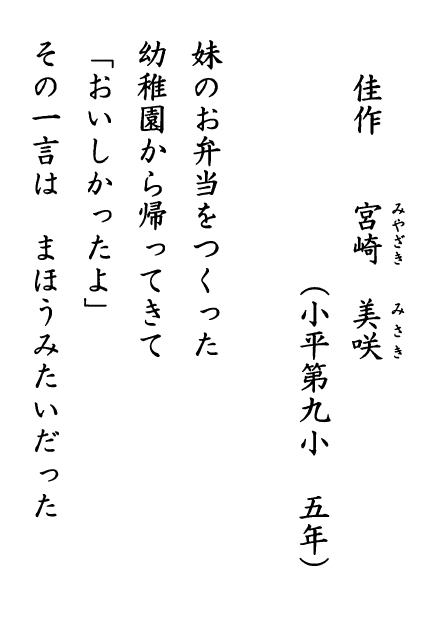 佳作　宮崎　美咲
みやざき　みさき
（小平第九小　五年）
妹のお弁当をつくった
幼稚園から帰ってきて
「おいしかったよ」
その一言は　まほうみたいだった